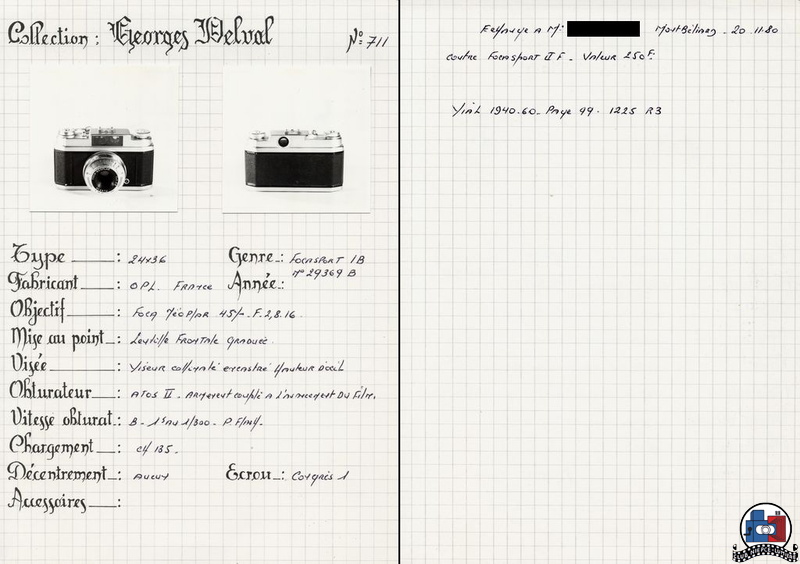 Collection : Georges Delval
N° 711
Type : 24x36
Genre : Focasport IB
n° 29369 B
Fabricant : OPL. France
Année :
Objectif : Foca Néoplar 45/-. F.2,8.16.
Mise au point : Lentille Frontale Graduée.
Visée : Viseur collimaté encastré Hauteur d'œil
Obturateur : ATOS II. Armement couplé a l'avancement Du Film.
Vitesse obturat. : B - 1s au 1/300 - P.F/m/-.
Chargement : ch/ 135.
Décentrement : Aucun
Ecrou : Congrès 1
Accessoires :
Echange a Mr. Montbéliard - 20.11.80
contre Focasport II F - Valeur 250 F.
Vial 1940.60 - Page 99 - 1225 R3